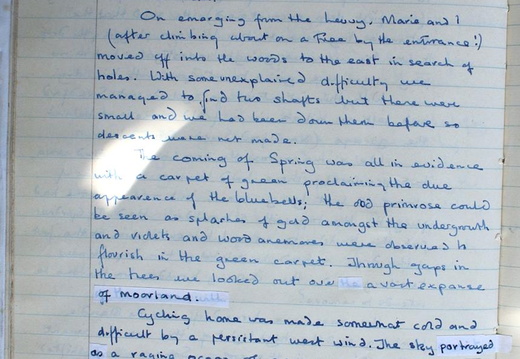 On emerging from the levvy, Marie and I
(after climbing about on a Tree by the entrance!)
moved off into the woods to the east in search of
holes. With some unexplained difficulty we
managed to find two shafts but there were
small and we had been down them before so
descents were not made.
The coming of Spring was all in evidence
with a carpet of green proclaiming the due
appearance of the bluebells; the odd primrose could
be seen as splashes of gold amongst the undergrowth
and violets and wood anemones were observed to
flourish in the green carpet. Through gaps in
the trees we looked out over a vast expanse
of moorland.
Cycling home was made somewhat cold and
difficult by a persistant west wind. The sky portrayed
as a raging ocean